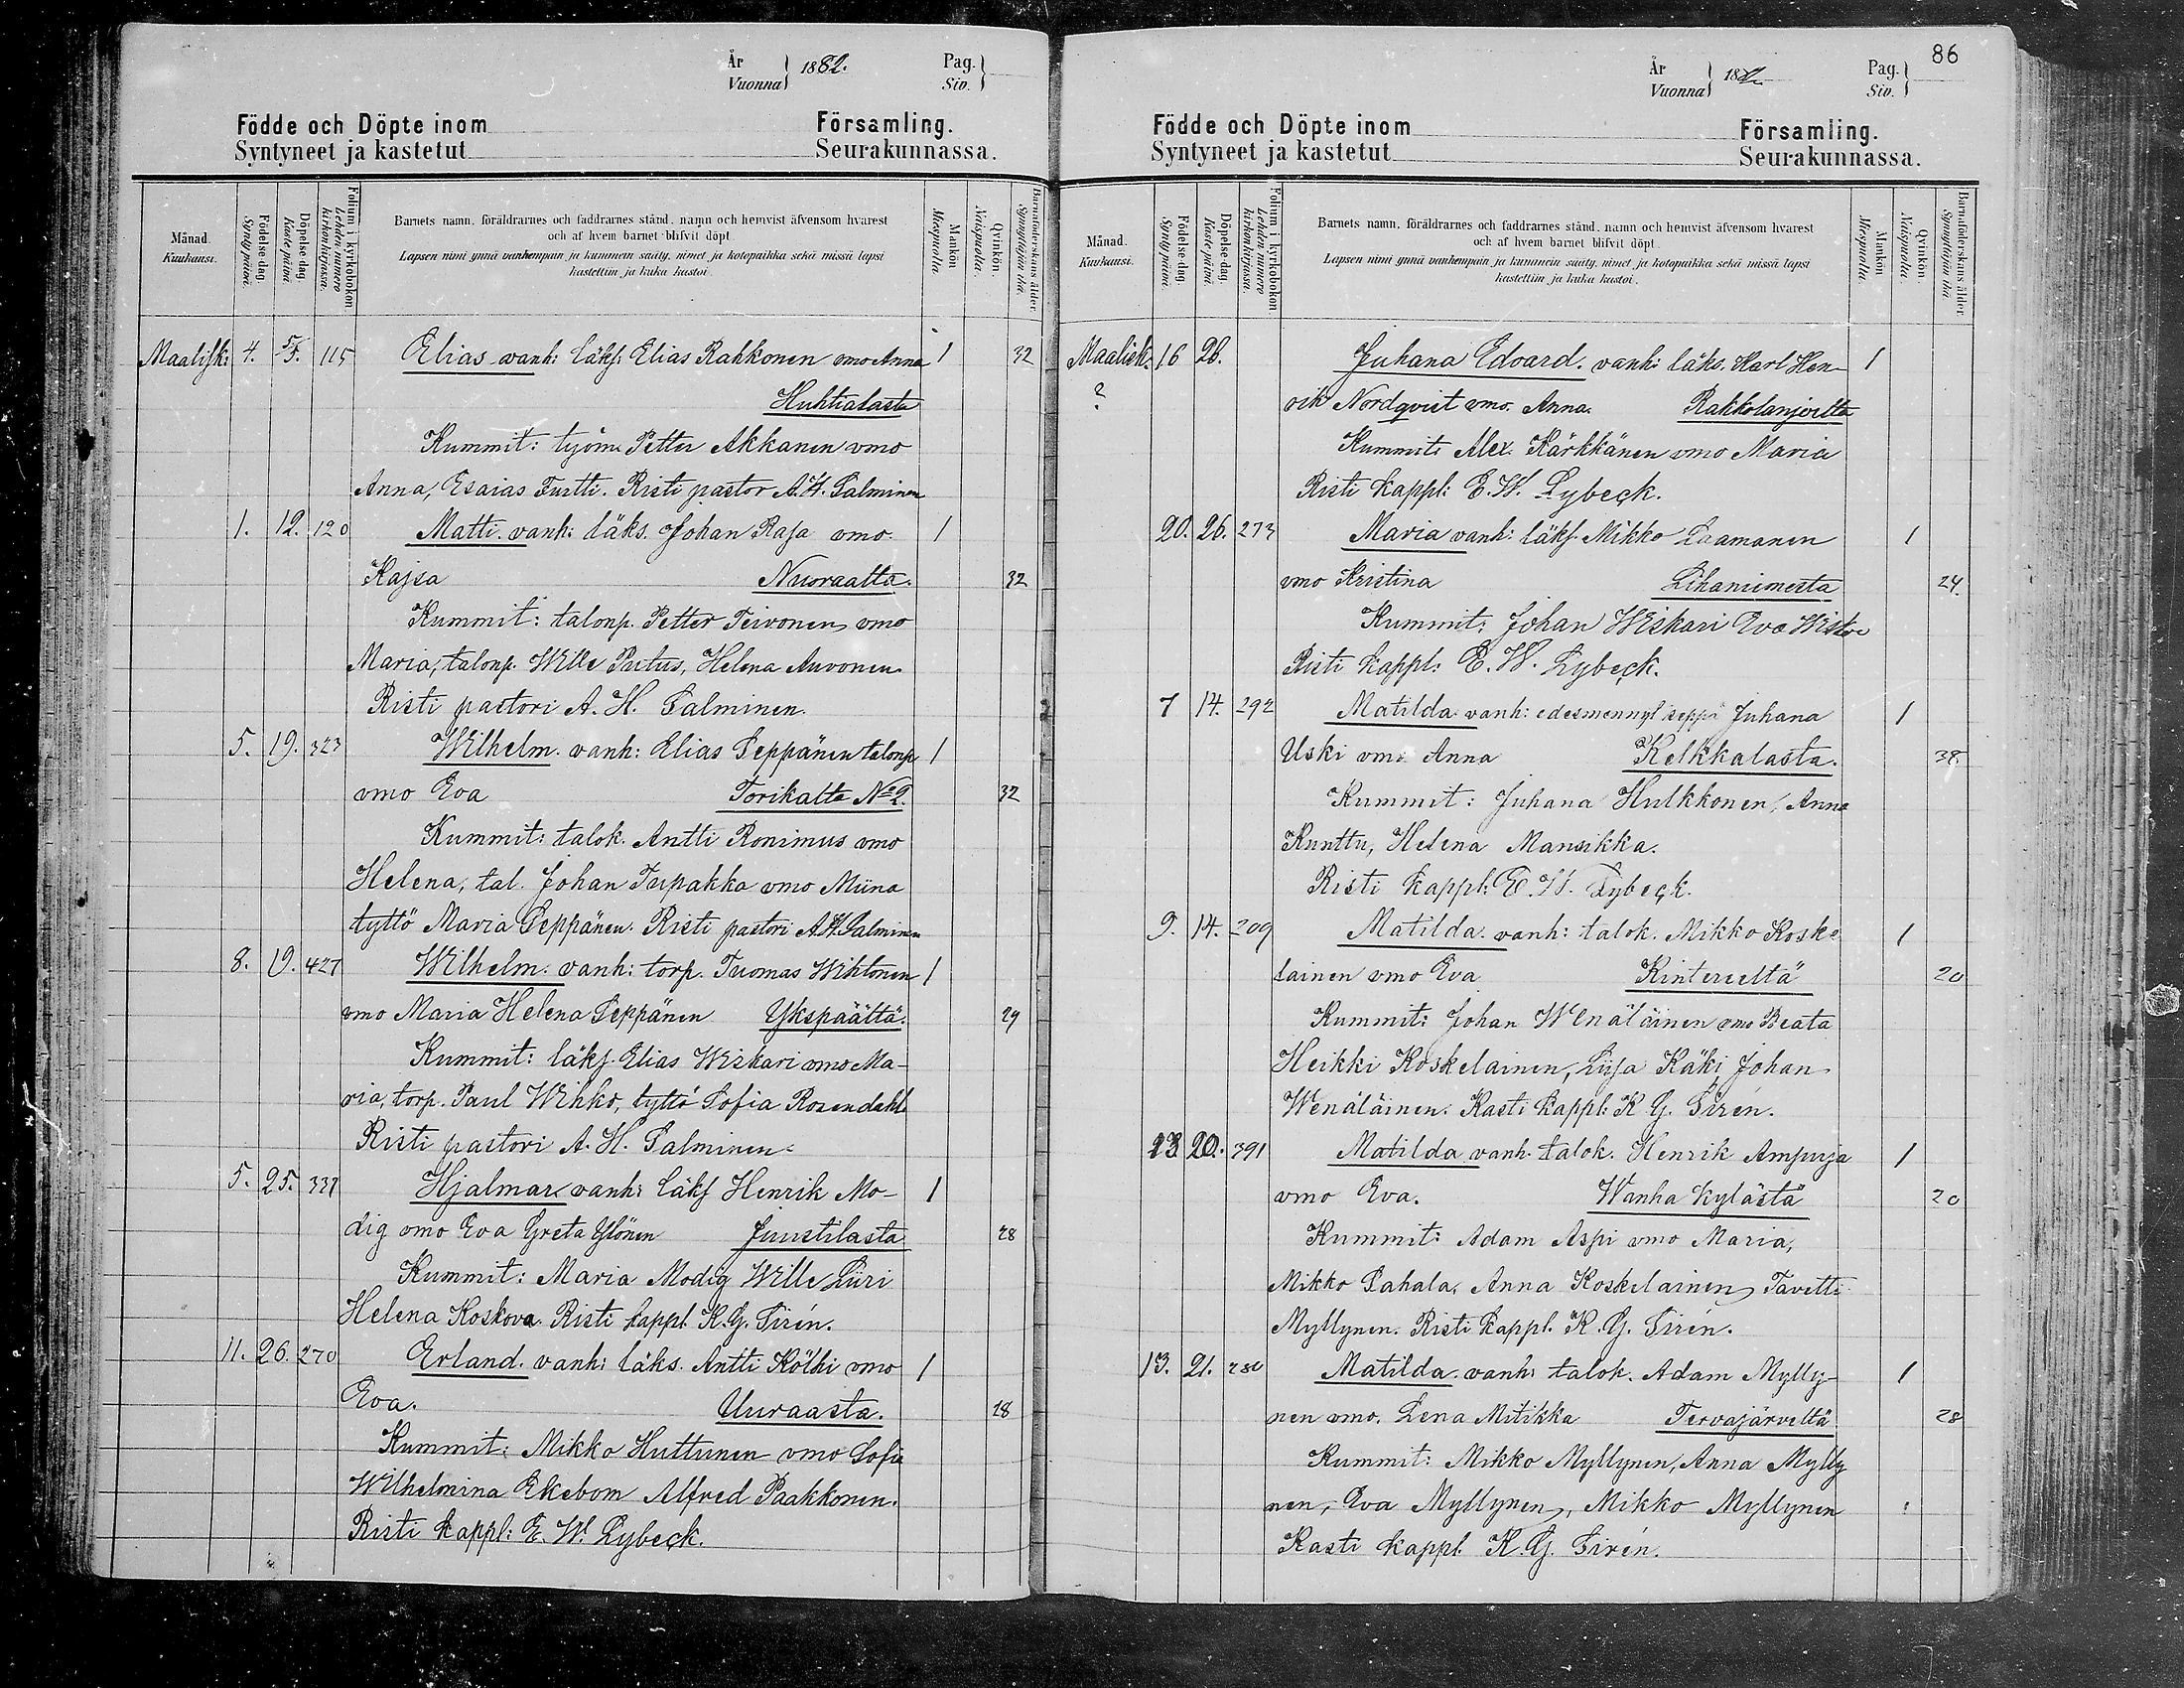 År
Vuonna
1882.
Pag.
Siv.
Födde och Döpte inom Församling.
Syntyneet ja kastetut Seurakunnassa.
Månad.
Kuukausi.
Födelse dag.
Syntypäivä.
Döpelse dag.
Kaste päivä.
Folium i kyrkoboken
Lehden numero kirkonkirjassa.
Barnets namn, föräldrarnes och faddrarnes stånd, namn och hemvist äfvensom hvarest
och af hvem barnet blifvit döpt.
Lapsen nimi ynnä vanhempain ja kummein sääty, nimet ja kotopaikka sekä missä lapsi
kastettiin ja kuka kastoi.
Mankön
Miespuolia.
Qvinkön.
Naispuolia.
Barnaföderskans ålder
Synnyttäjän ikä.
Maalisk: 4. 5. 115 Elias vanh: läksj: Elias Rahkonen vmo Anna 1 32
Huhtialasta
Kummit: työm. Petter Akkanen vmo
Anna, Esaias Turtti. Risti pastor A. H. Salminen
1. 12. 120 Matti. vanh: läks. Johan Rasa vmo 1
Kajsa Nuoraalta. 32
Kummit: talonp. Petter Teivonen vmo
Maria, talonp. Wille Putus, Helena Auvonen
Risti pastori A. H. Salminen.
5. 19. 323 Wilhelm. vanh: Elias Seppänen talonp 1
vmo Eva Torikalta No 2. 32
Kummit: talok. Antti Ronimus vmo
Helena, tal. Johan Tupakka vmo Miina
tyttö Maria Seppänen. Risti pastori A. H. Salminen
8. 19. 427 Wilhelm. vanh: torp. Tuomas Wihtonen 1
vmo Maria Helena Seppänen Ykspäältä. 29
Kummit: läksj. Elias Wiskari vmo Ma-
ria, torp. Paul Wihko, tyttö Sofia Rosendahl
Risti pastori A. H. Salminen
5. 25. 337 Hjalmar vanh: läksj Henrik Mo- 1
dig vmo Eva Greta Ylönen Juustilasta 28
Kummit: Maria Modig Wille Siiri
Helena Koskova. Risti kappl. K. G. Sirén.
11. 26. 270 Erland. vanh: läks. Antti Kölhi vmo 1
Eva. Uuraasta. 28
Kummit: Mikko Huttunen vmo Sofia
Wilhelmina Ekebom Alfred Paakkonen.
Risti kappl: E. W. Lybeck.
86
År
Vuonna
188
Pag.
Siv.
Födde och Döpte inom Församling.
Syntyneet ja kastetut Seurakunnassa.
Månad.
Kuukausi.
Födelse dag.
Syntypäivä.
Döpelse dag.
Kaste päivä.
Folium i kyrkoboken
Lehden numero kirkonkirjassa.
Barnets namn, föräldrarnes och faddrarnes stånd, namn och hemvist äfvensom hvarest
och af hvem barnet blifvit döpt.
Lapsen nimi ynnä vanhempain ja kummein sääty, nimet ja kotopaikka sekä missä lapsi
kastettiin ja kuka kastoi.
Mankön
Miespuolia.
Qvinkön.
Naispuolia.
Barnaföderskans ålder
Synnyttäjän ikä.
Maalisk. 16 26. Juhana Edoard. vanh: läks. Karl Hen- 1
? rik Nordqvist vmo. Anna. Rakkolanjoelta
Kummit: Alex. Kärkkänen vmo Maria
Risti kappl: E. W. Lybeck.
20. 26. 273 Maria vanh: läksj. Mikko Laamanen 1
vmo Kristina Lihaniemesta 24.
Kummit: Johan Wiskari Eva Wiskari
Risti kappl: E. W. Lybeck.
7 14. 292 Matilda vanh: edesmennyt seppä Juhana 1
Uski vmo Anna Kelkkalasta. 38.
Kummit: Juhana Hulkkonen, Anna
Kunttu, Helena Mansikka.
Risti kappl: E. W. Lybeck.
9. 14. 209 Matilda. vanh: talok. Mikko Koske 1
lainen vmo Eva Kintereeltä 20
Kummit: Johan Wenäläinen vmo Beata
Heikki Koskelainen, Liisa Käki Johan
Wenäläinen. Kasti kappl: K. G. Sirén.
13 20. 391 Matilda vanh. talok. Henrik Ampuja 1
vmo Eva. Wanha kylästä 20
Kummit: Adam Aspi vmo Maria,
Mikko Sahala, Anna Koskelainen, Tavetti
Myllynen. Risti kappl. K. G. Sirén.
13. 21. 280 Matilda. vanh: talok. Adam Mylly- 1
nen vmo. Lena Mitikka Tervajärveltä 28
Kummit: Mikko Myllynen, Anna Mylly
nen, Eva Myllynen, Mikko Myllynen
Kasti kappl. K. G. Sirén.